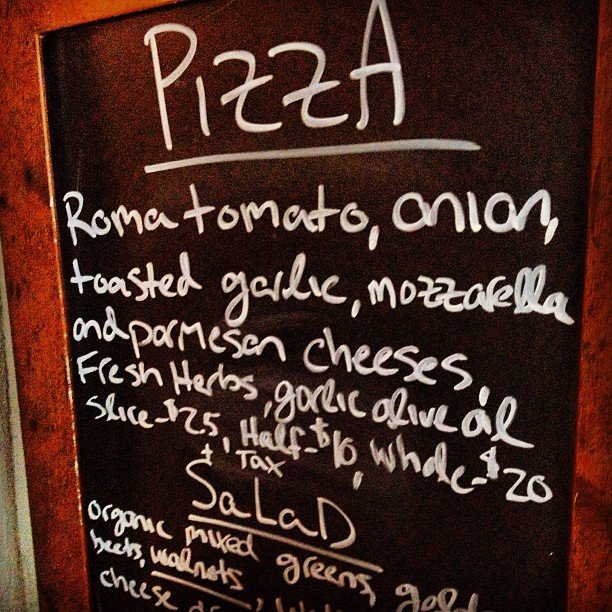 PIZZA
Roma tomato, onion,
toasted garlic, mozzarella
and parmesan cheeses,
Fresh Herbs, garlic olive oil
Slice-$2.5, Half-$10, Whole-$20
+ Tax
SaLaD
organic mixed greens, gold
beets, walnuts,
cheese